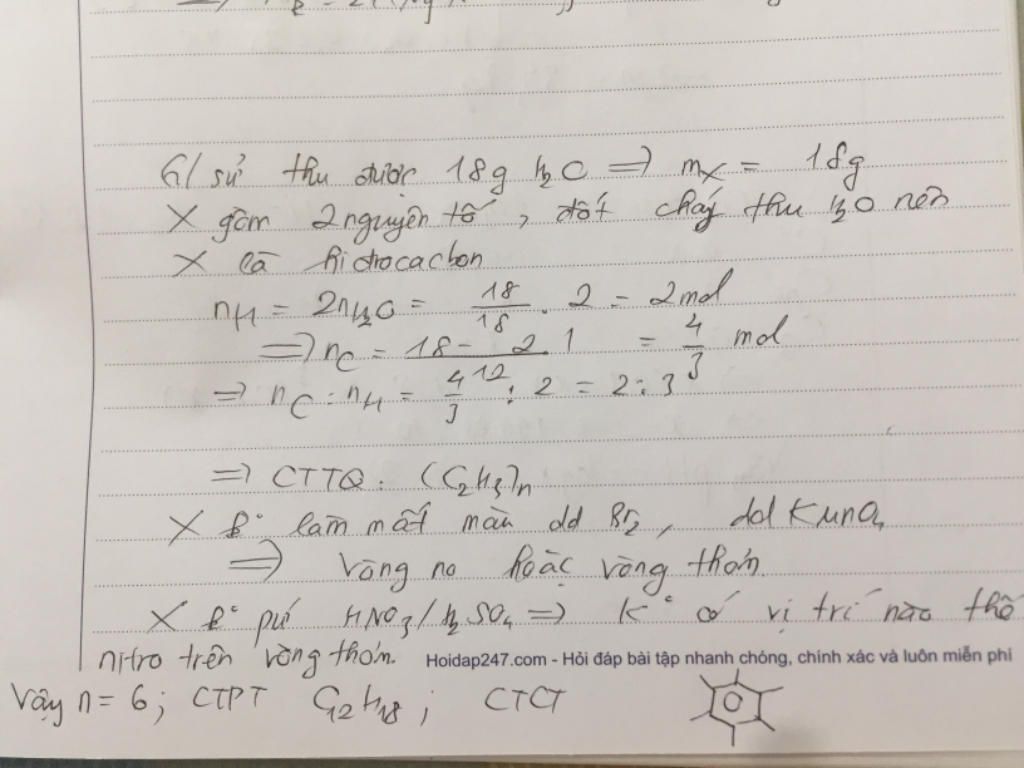 G/ sử thu được 18g H₂O => mX = 18g
X gồm 2 nguyên tố, đốt cháy thu H₂O nên
X là hidrocacbon
nH = 2nH₂O = 18/18 . 2 = 2mol
=> nC = (18 - 2.1)/12 = 4/3 mol
=> nC : nH = 4/3 : 2 = 2 : 3
=> CTTQ. (C₂H₃)n
X k° làm mất màu dd Br₂, dd KMnO₄
=> Vòng no hoặc vòng thơm.
X k° pứ HNO₃/H₂SO₄ => K° có vị trí nào thế
nitro trên vòng thơm.
Hoidap247.com - Hỏi đáp bài tập nhanh chóng, chính xác và luôn miễn phí
Vậy n = 6; CTPT C₁₂H₁₈; CTCT